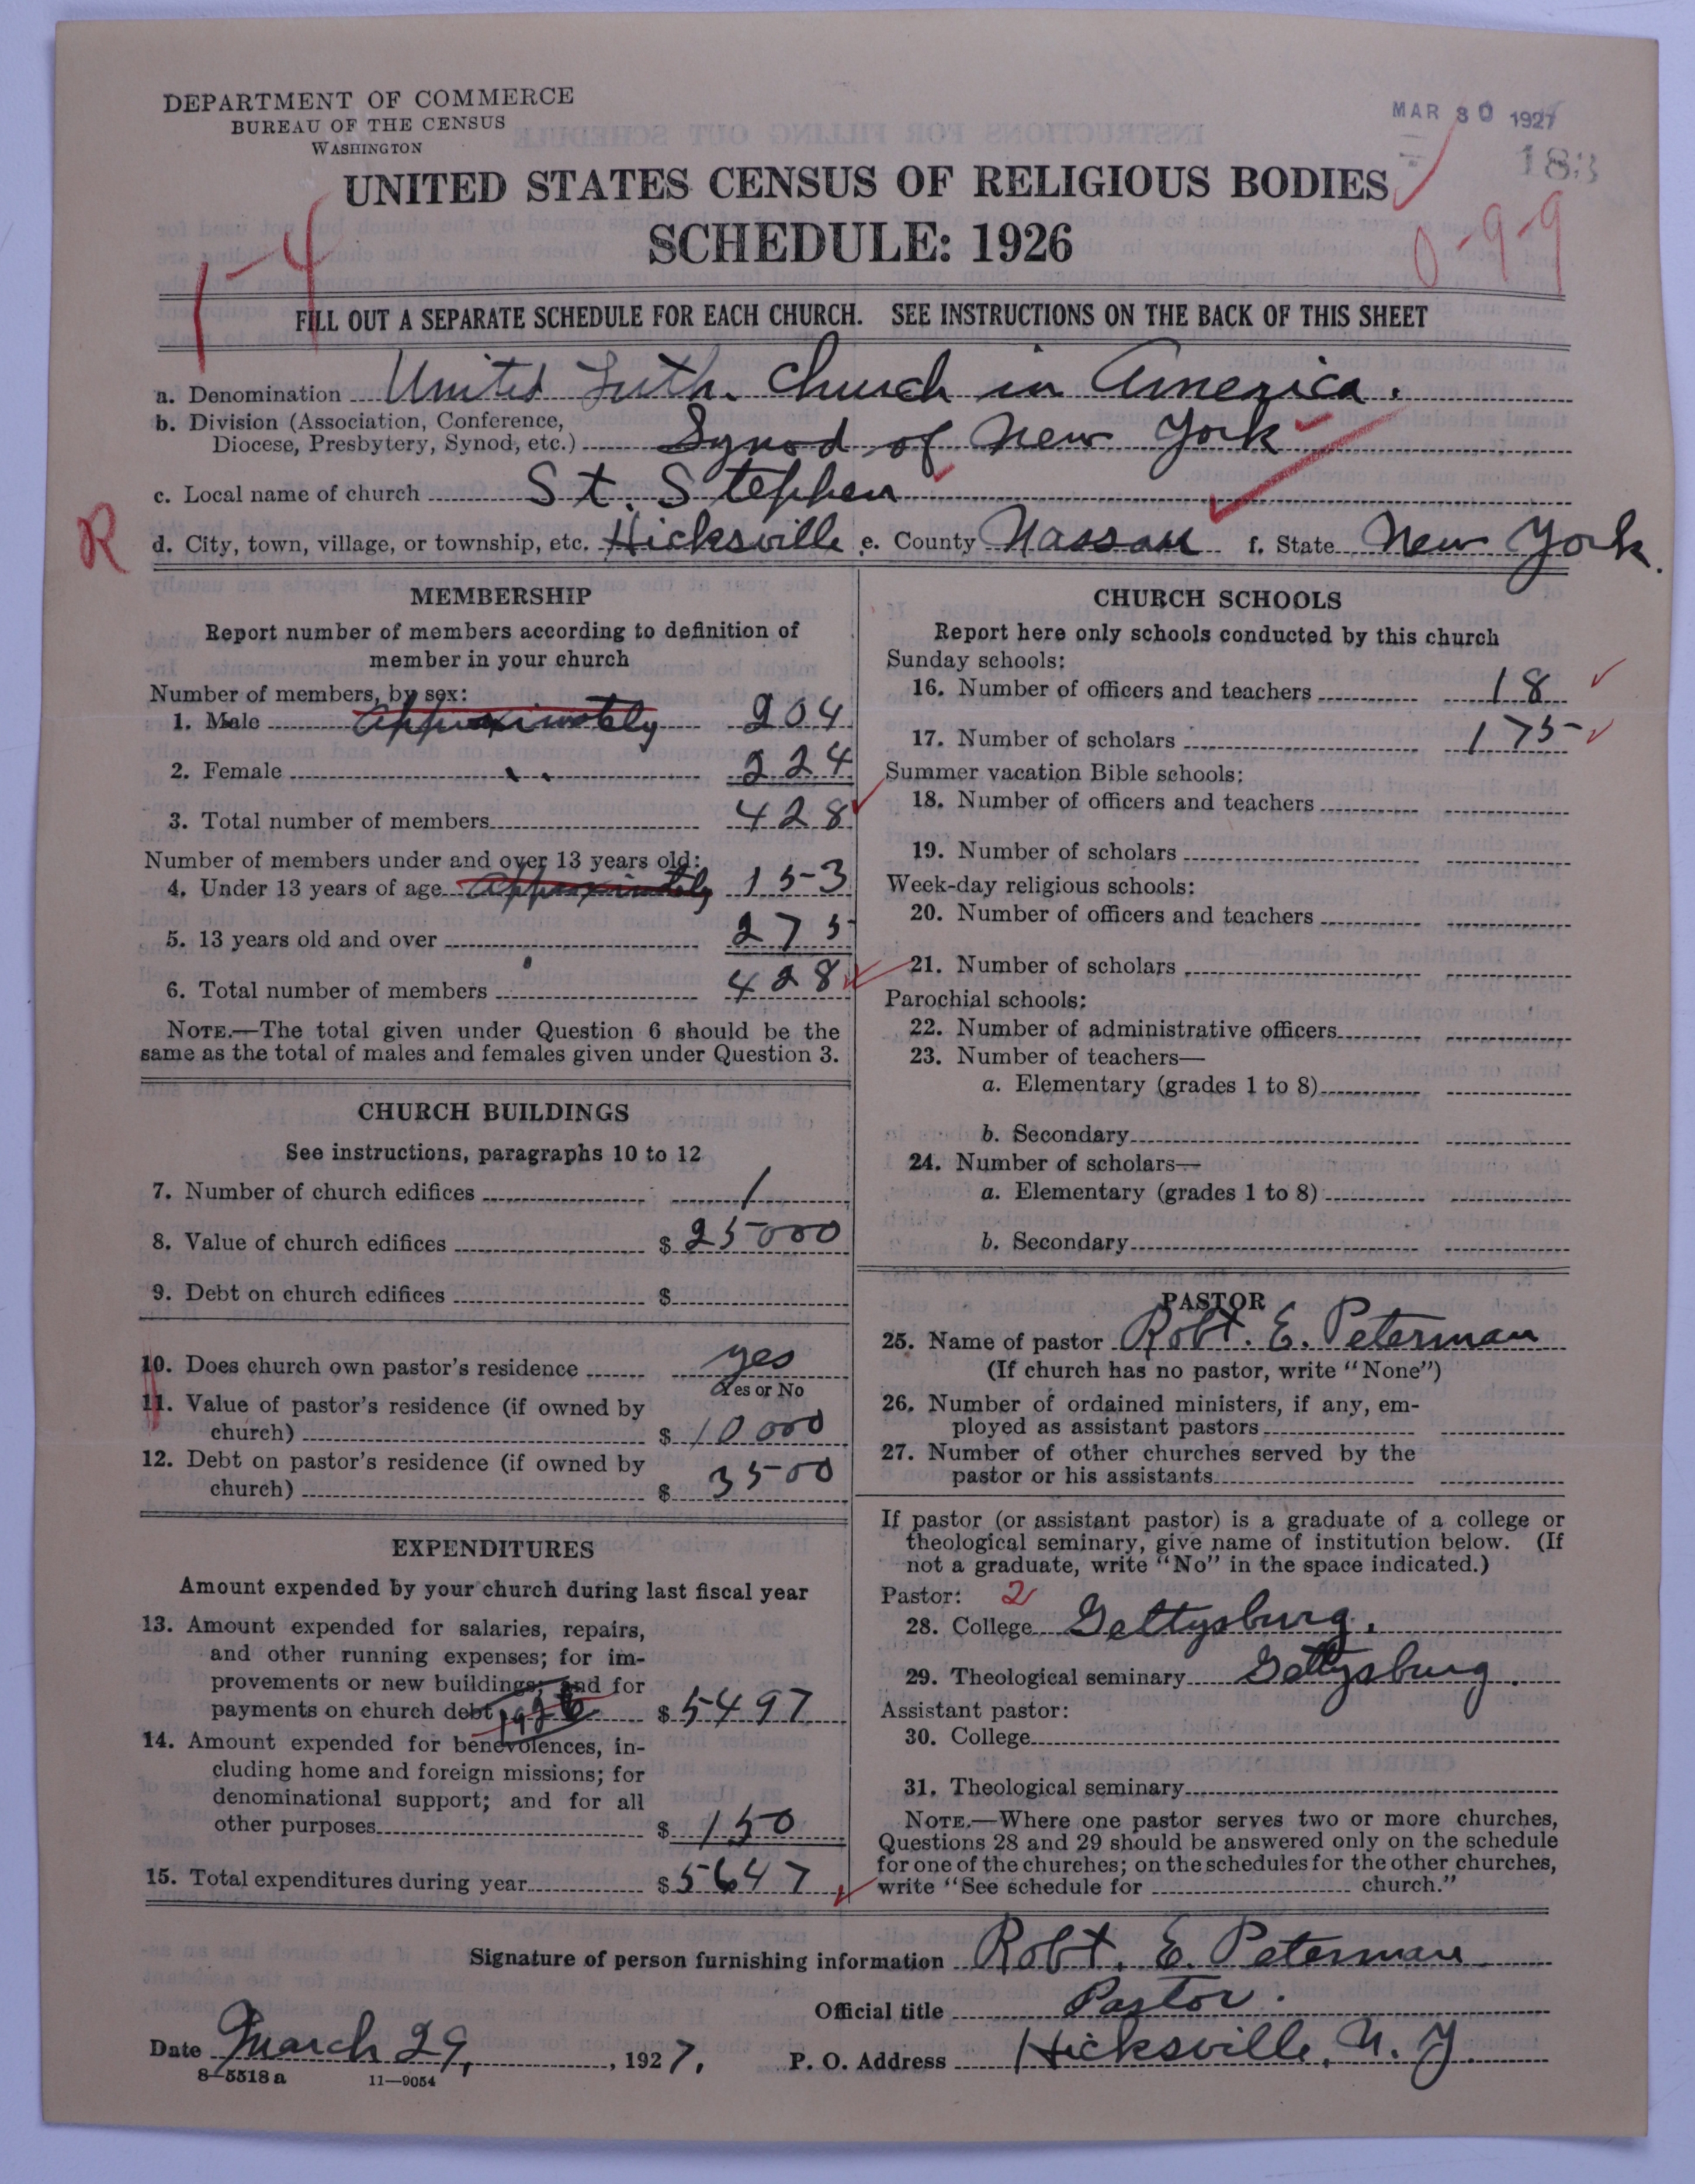 DEPARTMENT OF COMMERCE
BUREAU OF THE CENSUS
WASHINGTON
MAR 30 1927
183
UNITED STATES CENSUS OF RELIGIOUS BODIES
SCHEDULE: 1926
1-4
0-9-9
FILL OUT A SEPARATE SCHEDULE FOR EACH CHURCH. SEE INSTRUCTIONS ON THE BACK OF THIS SHEET
a. Denomination United Luth. Church in America.
b. Division (Association, Conference,
Diocese, Presbytery, Synod, etc.) Synod of New York
c. Local name of church St. Stephen
R
d. City, town, village, or township, etc. Hicksville e. County Nassau f. State New York.
MEMBERSHIP
Report number of members according to definition of
member in your church
Number of members, by sex:
1. Male Approximately 204
2. Female 224
3. Total number of members 428
Number of members under and over 13 years old:
4. Under 13 years of age Approximately 153
5. 13 years old and over 275
6. Total number of members 428
NOTE.—The total given under Question 6 should be the
same as the total of males and females given under Question 3.
CHURCH BUILDINGS
See instructions, paragraphs 10 to 12
7. Number of church edifices 1
8. Value of church edifices $ 25000
9. Debt on church edifices $
10. Does church own pastor's residence yes
Yes or No
11. Value of pastor's residence (if owned by
church) $ 10000
12. Debt on pastor's residence (if owned by
church) $ 3500
EXPENDITURES
Amount expended by your church during last fiscal year
13. Amount expended for salaries, repairs,
and other running expenses; for im-
provements or new buildings; and for
payments on church debt 1926 $ 5497
14. Amount expended for benevolences, in-
cluding home and foreign missions; for
denominational support; and for all
other purposes $ 150
15. Total expenditures during year $ 5647
CHURCH SCHOOLS
Report here only schools conducted by this church
Sunday schools:
16. Number of officers and teachers 18
17. Number of scholars 175
Summer vacation Bible schools:
18. Number of officers and teachers
19. Number of scholars
Week-day religious schools:
20. Number of officers and teachers
21. Number of scholars
Parochial schools:
22. Number of administrative officers
23. Number of teachers—
a. Elementary (grades 1 to 8)
b. Secondary
24. Number of scholars—
a. Elementary (grades 1 to 8)
b. Secondary
PASTOR
25. Name of pastor Robt. E. Peterman
(If church has no pastor, write "None")
26. Number of ordained ministers, if any, em-
ployed as assistant pastors
27. Number of other churches served by the
pastor or his assistants
If pastor (or assistant pastor) is a graduate of a college or
theological seminary, give name of institution below. (If
not a graduate, write "No" in the space indicated.)
Pastor: 2
28. College Gettysburg.
29. Theological seminary Gettysburg.
Assistant pastor:
30. College
31. Theological seminary
NOTE.—Where one pastor serves two or more churches,
Questions 28 and 29 should be answered only on the schedule
for one of the churches; on the schedules for the other churches,
write "See schedule for church."
Signature of person furnishing information Robt. E. Peterman
Official title Pastor.
Date March 29, 1927. P. O. Address Hicksville, N. Y.
8-5518a 11—9054